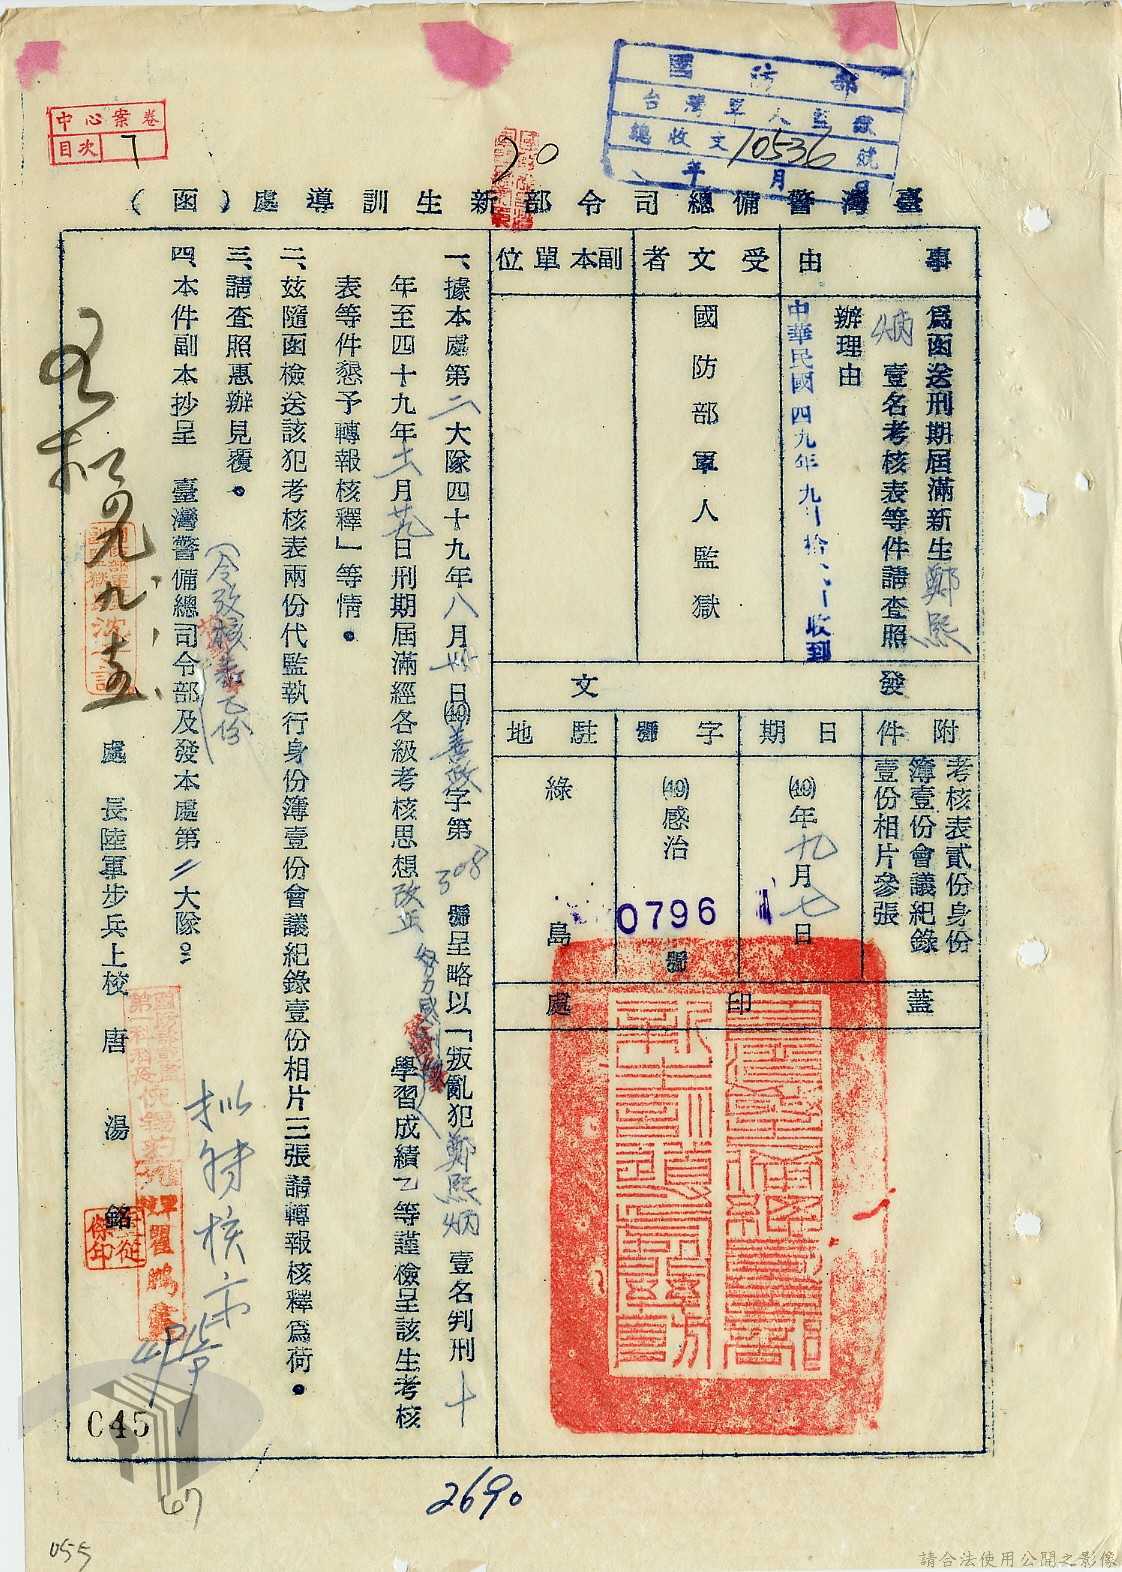 中心案卷
目次 7
國防部
台灣軍人監獄
總收文10536號
年 月 日
臺灣警備總司令部新生訓導處（函）
事由
為函送刑期屆滿新生鄭熙
炳 壹名考核表等件請查照
辦理由
中華民國四九年九月拾 收到
受文者
國防部軍人監獄
副本單位
發文
附件
考核表貳份身份
簿壹份會議紀錄
壹份相片參張
日期
(49)年九月七日
字號
(49)感治
0796
號
駐地
綠島
蓋印處
一、據本處第二大隊四十九年八月廿 日(49)善 字第308號呈略以「叛亂犯鄭熙炳 壹名判刑十
年至四十九年十一月廿九日刑期屆滿經各級考核思想改正 學習成績乙等謹檢呈該生考核
表等件懇予轉報核釋」等情。
二、茲隨函檢送該犯考核表兩份代監執行身份簿壹份會議紀錄壹份相片三張請轉報核釋為荷。
三、請查照惠辦見覆。
四、本件副本抄呈 臺灣警備總司令部及發本處第二大隊
處長陸軍步兵上校 唐湯銘
擬 核
九、 五
C45
67
2690
055
請合法使用公開之影像